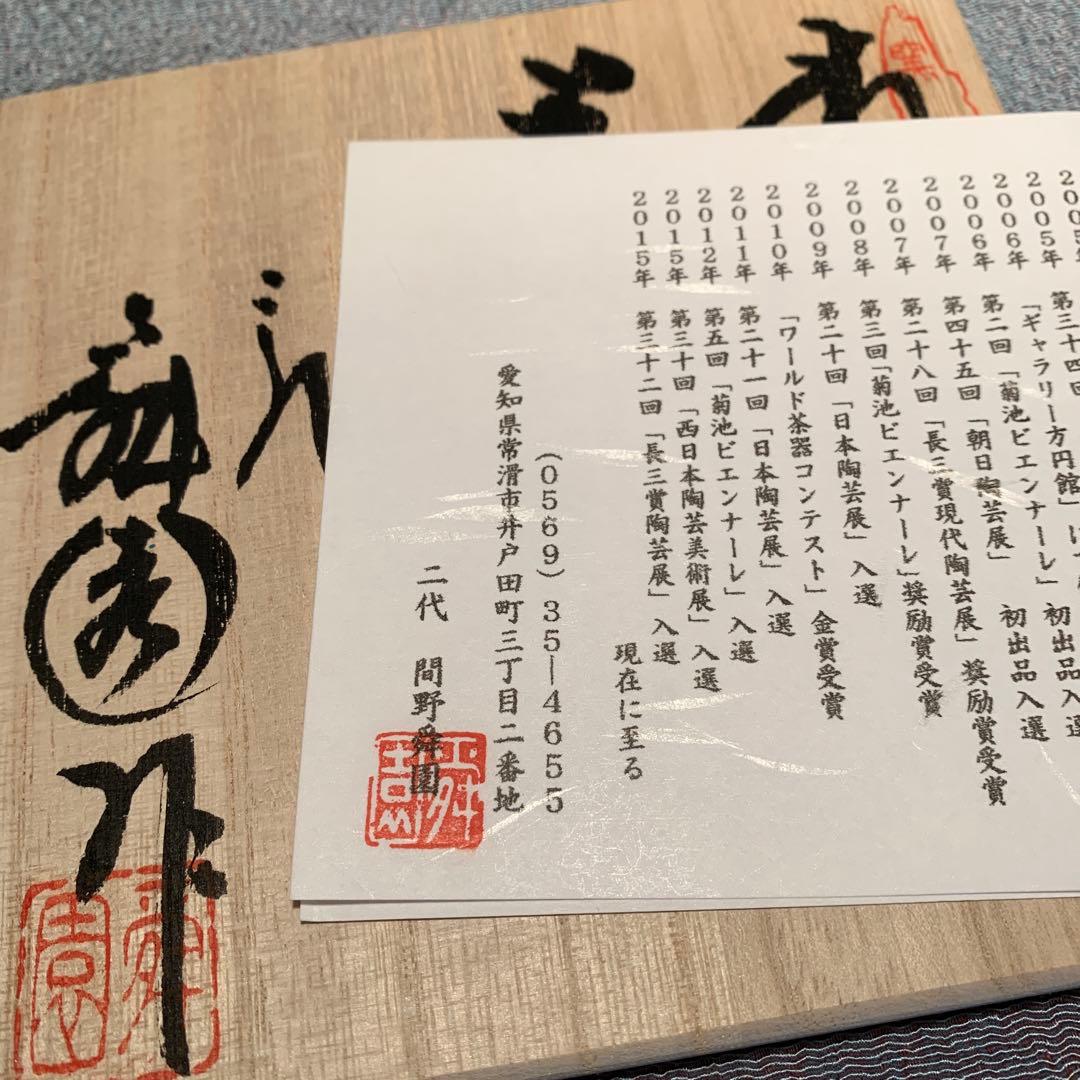 2005年
2005年 第三十四回
2006年 「ギャラリー方円館」にて
2006年 第二回「菊池ビエンナーレ」 初出品入選
2007年 第四十五回「朝日陶芸展」 初出品入選
2007年 第二十八回「長三賞現代陶芸展」 奨励賞受賞
2008年 第三回「菊池ビエンナーレ」奨励賞受賞
2009年 第二十回「日本陶芸展」 入選
2010年 「ワールド茶器コンテスト」 金賞受賞
2011年 第二十一回「日本陶芸展」 入選
2012年 第五回「菊池ビエンナーレ」 入選
2015年 第三十回「西日本陶芸美術展」 入選
2015年 第三十二回「長三賞陶芸展」 入選
現在に至る
(0569)35—4655
愛知県常滑市井戸田町三丁目二番地
二代 間野舜園
舜園
舜園作
舜園